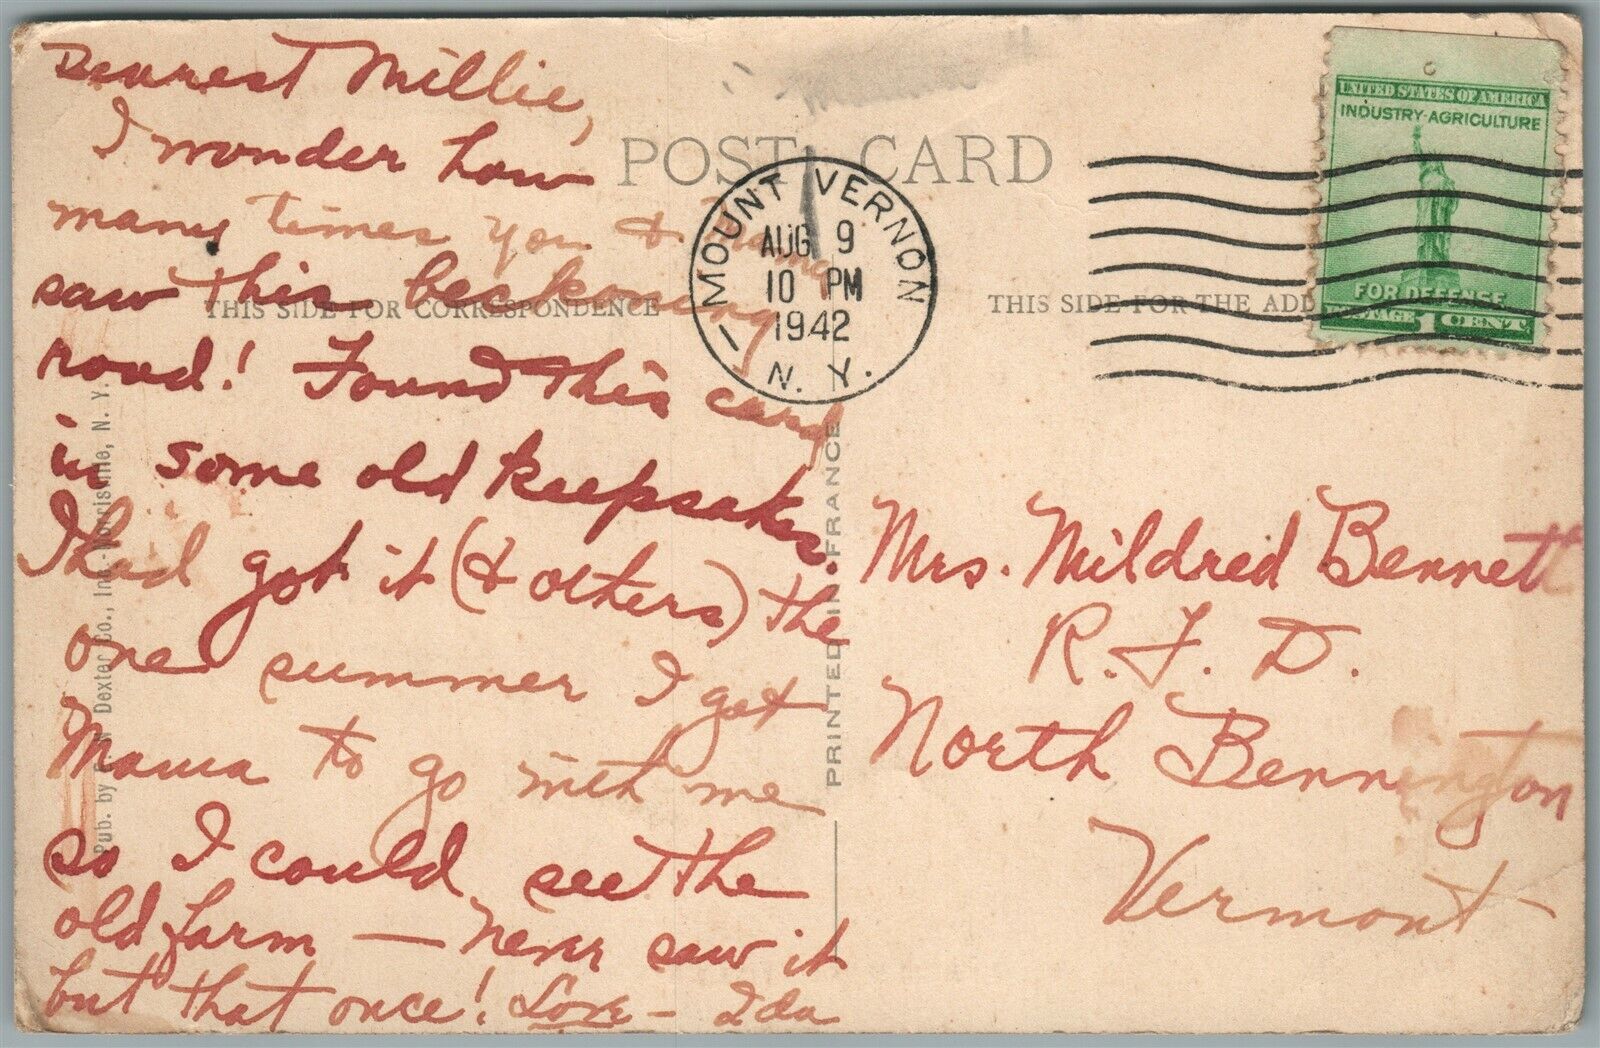 Dearest Millie,
I wonder how
many times you & Mama
saw this beckoning
road! Found this card
in some old keepsakes.
I had got it (& others) the
one summer I got
Mama to go with me
so I could see the
old farm — Never saw it
but that once! Love — Ida
POST CARD
THIS SIDE FOR CORRESPONDENCE
THIS SIDE FOR THE ADD
MOUNT VERNON
AUG 9
10 PM
1942
N. Y.
1
UNITED STATES OF AMERICA
INDUSTRY-AGRICULTURE
FOR DEFENSE
1 CENT.
Mrs. Mildred Bennett
R. F. D.
North Bennington
Vermont
PRINTED IN FRANCE
Pub. by C. W. Dexter Co., Inc. Morrisville, N. Y.